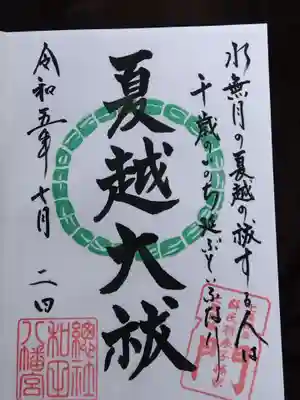 水無月の夏越の祓する人は
千歳のいのち延ぶといふなり
夏越大祓
令和五年七月二日
総社
和田
八幡宮